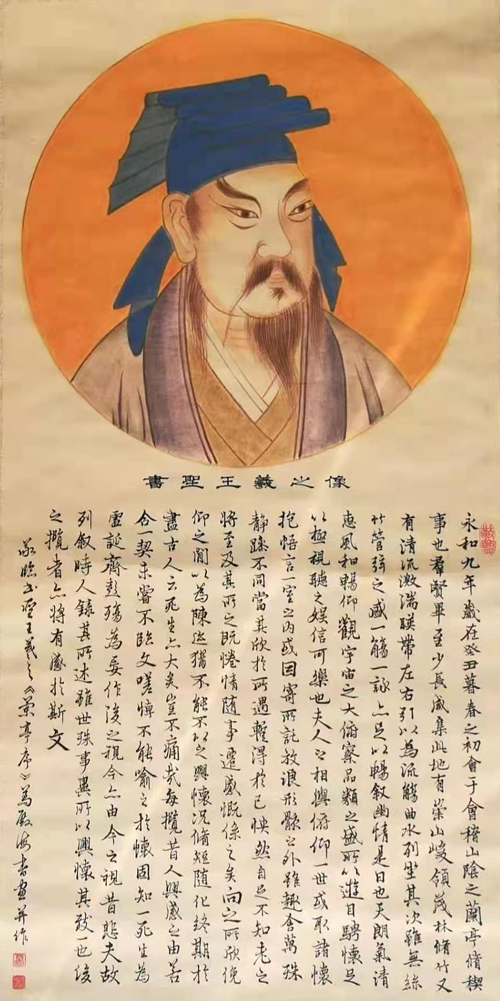 書聖王羲之像
永和九年歲在癸丑暮春之初會于會稽山陰之蘭亭脩稧
事也羣賢畢至少長咸集此地有崇山峻領茂林脩竹又
有清流激湍暎帶左右引以為流觴曲水列坐其次雖無絲
竹管弦之盛一觴一詠亦足以暢叙幽情是日也天朗氣清
惠風和暢仰觀宇宙之大俯察品類之盛所以遊目騁懷足
以極視聽之娛信可樂也夫人之相與俯仰一世或取諸懷
抱悟言一室之內或因寄所託放浪形骸之外雖趣舍萬殊
靜躁不同當其欣於所遇蹔得於己怏然自足不知老之
將至及其所之既惓情隨事遷感慨係之矣向之所欣俛
仰之閒以為陳迹猶不能不以之興懷況脩短隨化終期於
盡古人云死生亦大矣豈不痛哉每攬昔人興感之由若
合一契未嘗不臨文嗟悼不能喻之於懷固知一死生為
虛誕齊彭殤為妄作後之視今亦由今之視昔悲夫故
列叙時人錄其所述雖世殊事異所以興懷其致一也後
之攬者亦將有感於斯文
敬臨書聖王羲之《蘭亭序》殿海書畫并作